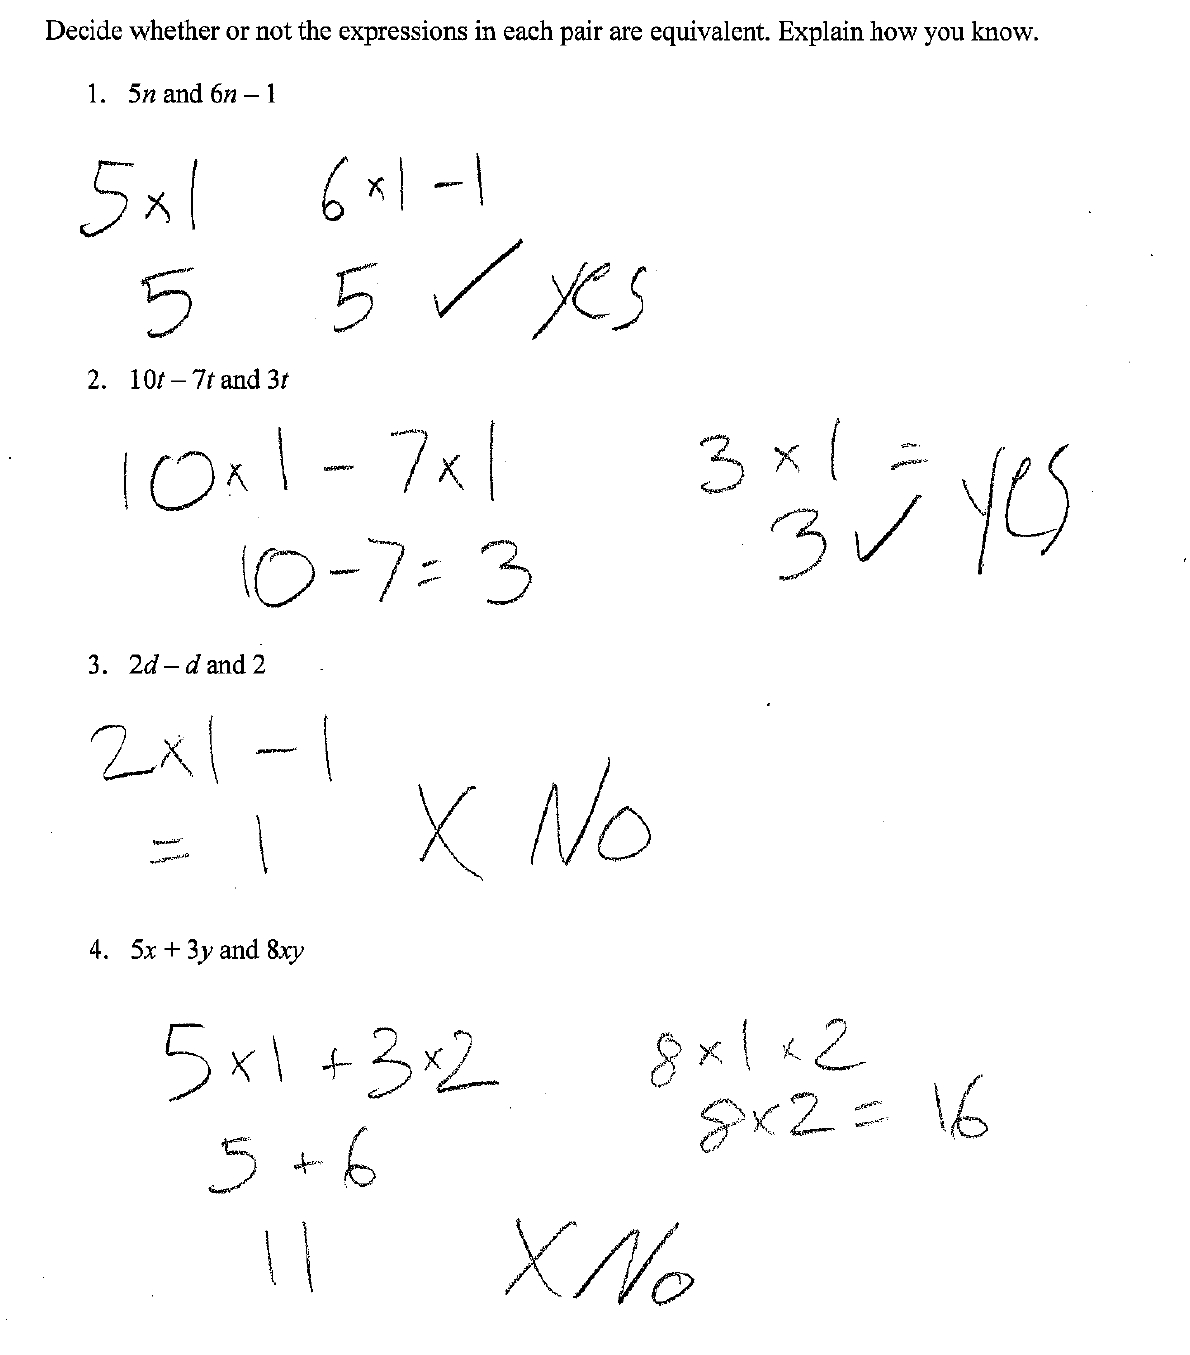 Decide whether or not the expressions in each pair are equivalent. Explain how you know.
1. 5n and 6n – 1
5×1 6×1 – 1
5 5 ✓ yes
2. 10t – 7t and 3t
10×1 – 7×1 3×1 =
10-7=3 3 ✓ yes
3. 2d – d and 2
2×1 – 1
= 1 X NO
4. 5x + 3y and 8xy
5×1 +3×2 8×1×2
8×2 = 16
5 +6
11 X No